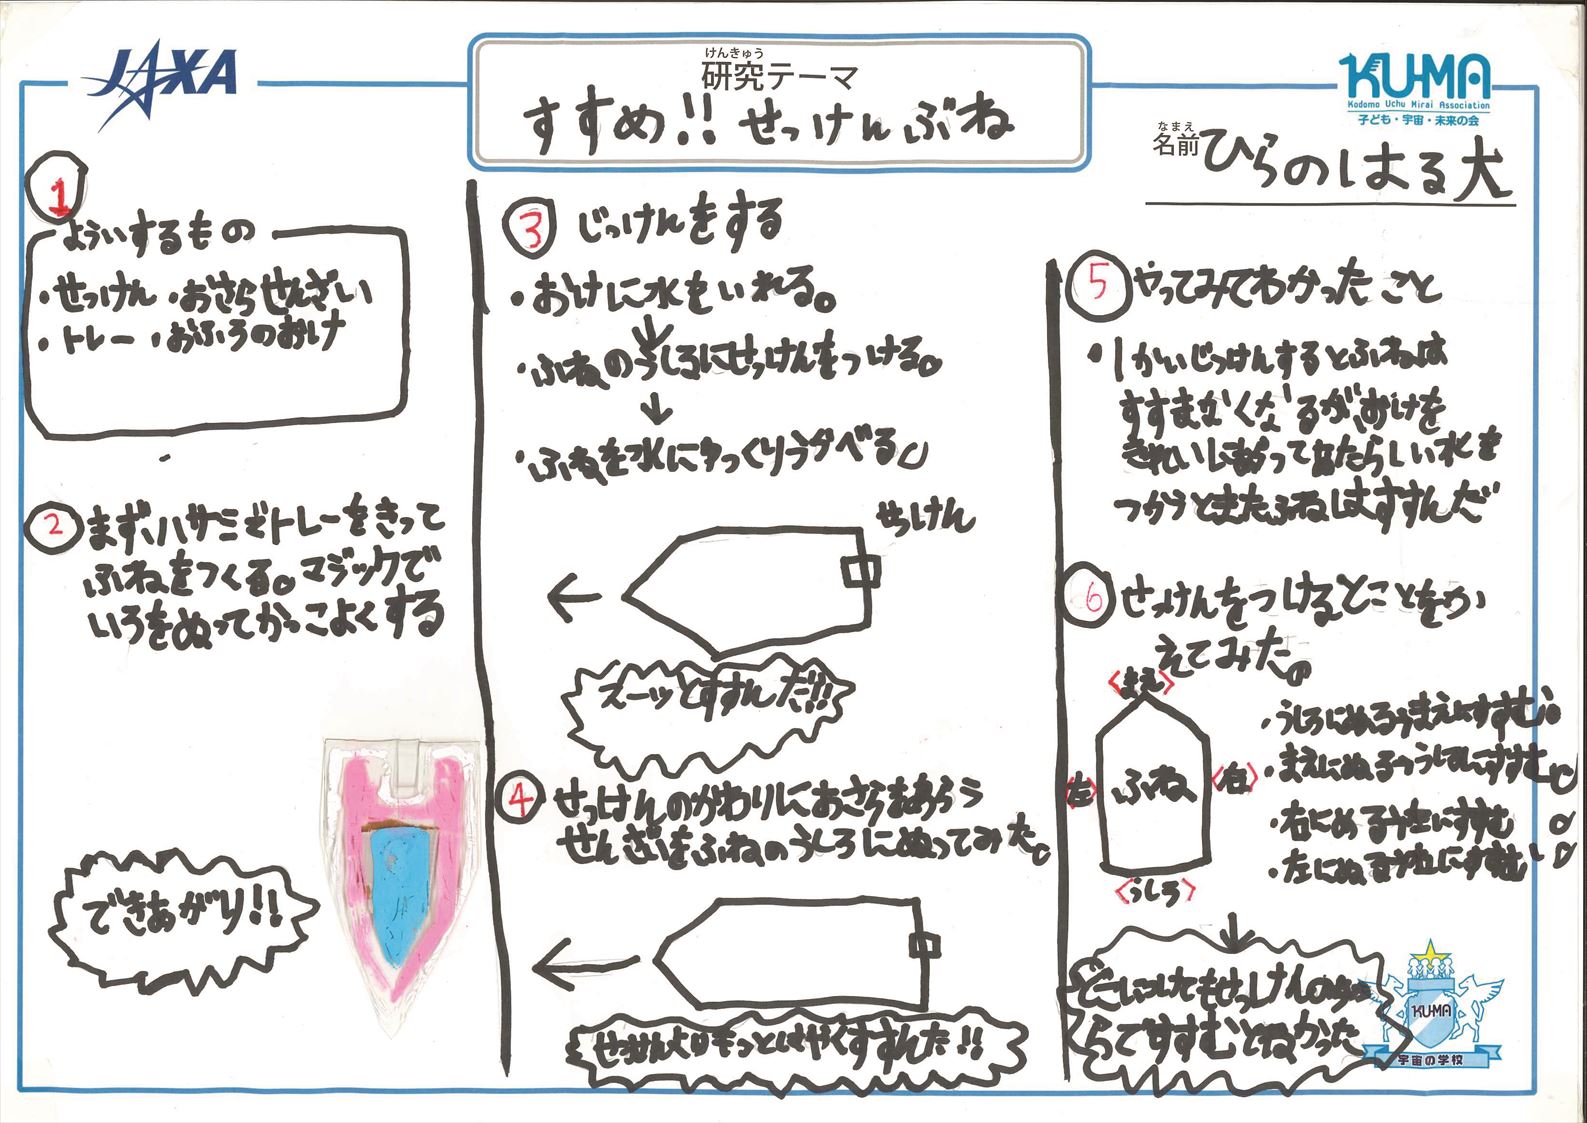 JAXA
けんきゅう
研究テーマ
すすめ!! せっけんぶね
KUMA
Kodomo Uchu Mirai Association
子ども・宇宙・未来の会
なまえ
名前 ひらのはる大
1
よういするもの
・せっけん ・おさらせんざい
・トレー ・おふろのおけ
2 まず、ハサミでトレーをきって
ふねをつくる。マジックで
いろをぬってかっこよくする
できあがり!!
3 じっけんをする
・おけに水をいれる。
↓
・ふねのうしろにせっけんをつける。
↓
・ふねを水にゆっくりうかべる。
せっけん
←
スーッとすすんだ!!
4 せっけんのかわりにおさらをあらう
せんざいをふねのうしろにぬってみた。
←
せっけんよりもっとはやくすすんだ!!
5 やってみてわかったこと
・1かいじっけんするとふねは
すすまなくなるがおけを
きれいにあらってあたらしい水を
つかうとまたふねはすすんだ
6 せっけんをつけるところをか
えてみた。
〈まえ〉
〈左〉 ふね 〈右〉
〈うしろ〉
・うしろにぬる→まえにすすむ。
・まえにぬる→うしろにすすむ。
・右にぬる→左にすすむ。
・左にぬる→右にすすむ。
↓
どこにつけてもせっけんのちか
らですすむとわかった
KUMA
宇宙の学校